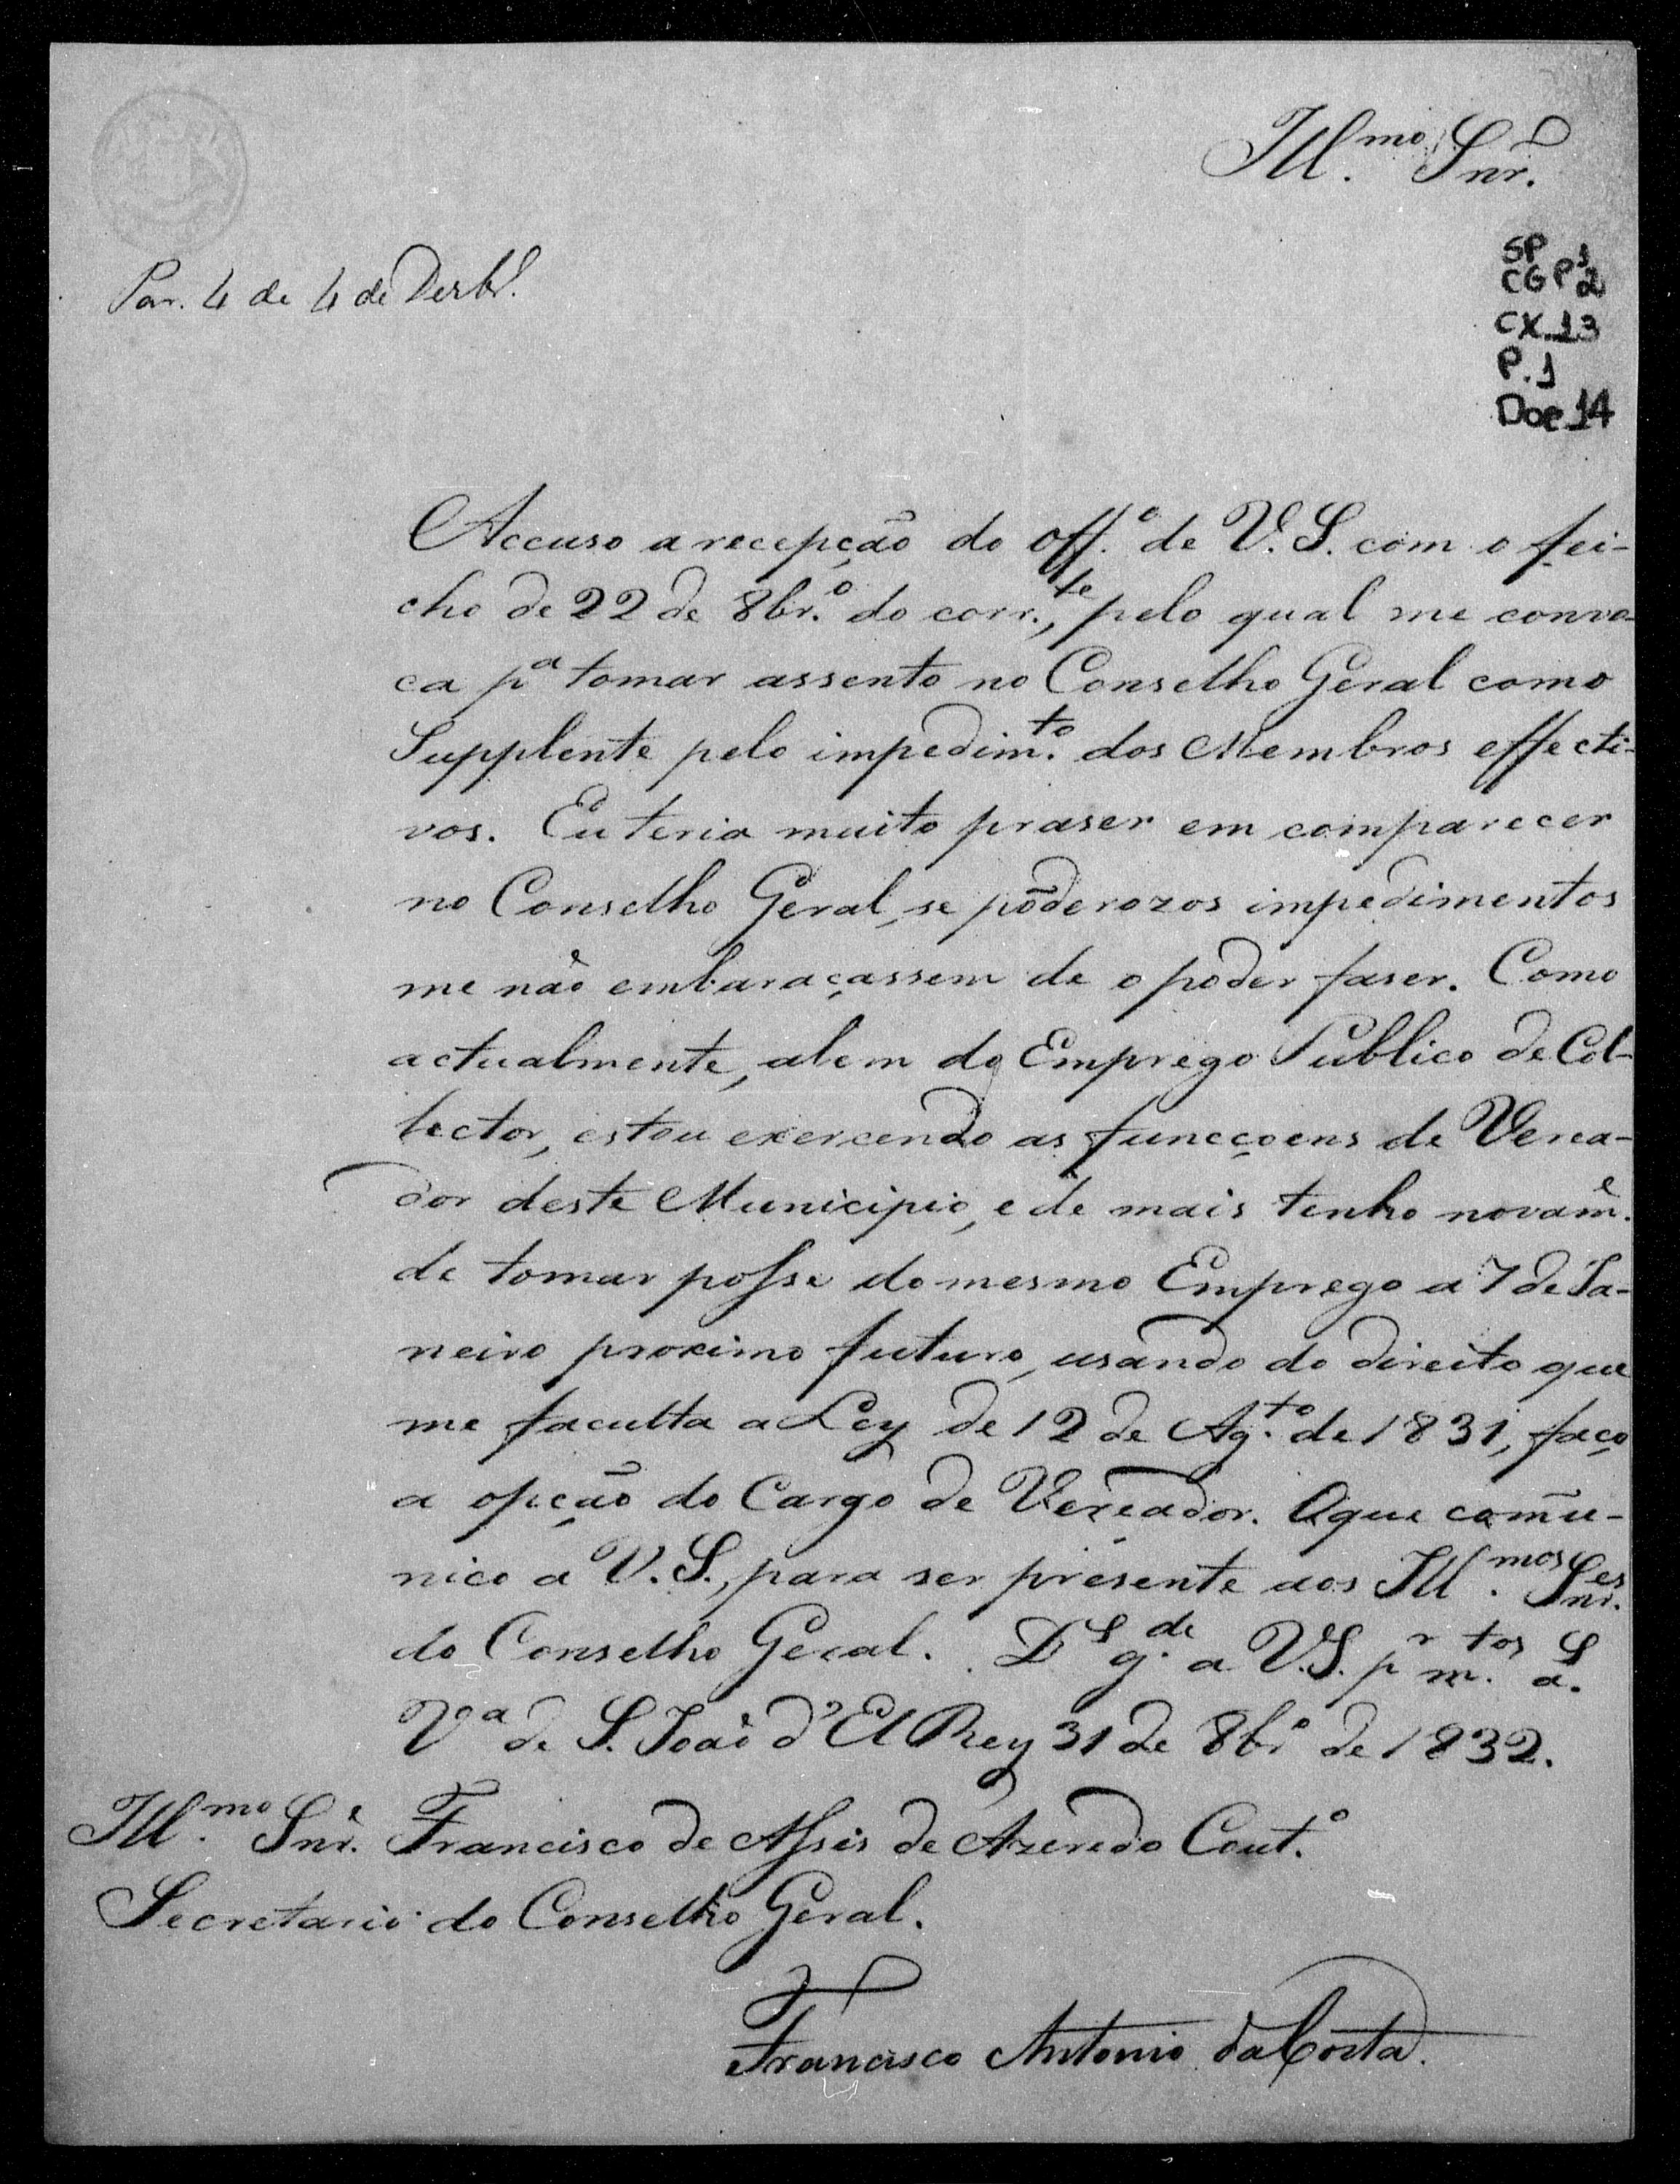 Ill.mo Snr.
SP
CGP 1 2
CX_13
P.1
Doc_14
Par. 4 de 4 de Dezbr.
Accuso a recepção do off.º de V. S. com o fei-
cho de 22 de 8br.º do corr.te, pelo qual me convo-
ca p.a tomar assento no Conselho Geral como
Supplente pelo impedim.to dos Membros effecti-
vos. Eu teria muito praser em comparecer
no Conselho Geral, se põderozos impedimentos
me não embaraçassem de o poder faser. Como
actualmente, alem do Emprego Publico de Col-
lector, estou exercendo as funcçoens de Verea-
dor deste Municipio, e de mais tenho novam.e
de tomar posse do mesmo Emprego a 7 de Ja-
neiro proximo futuro, usando do direito que
me faculta a Ley de 12 de Ag.to de 1831, faço
a opção do Cargo de Vereador. O que com̃u-
nico a V. S., para ser presente aos Ill.mos Snr.es
do Conselho Geral. D.s g.de a V. S. p.r m.tos a.s
V.a de S. João d'El Rey 31 de 8br.º de 1832.
Ill.mo Snr. Francisco de Assis de Azeredo Cout.º
Secretario do Conselho Geral.
Francisco Antonio da Costa.